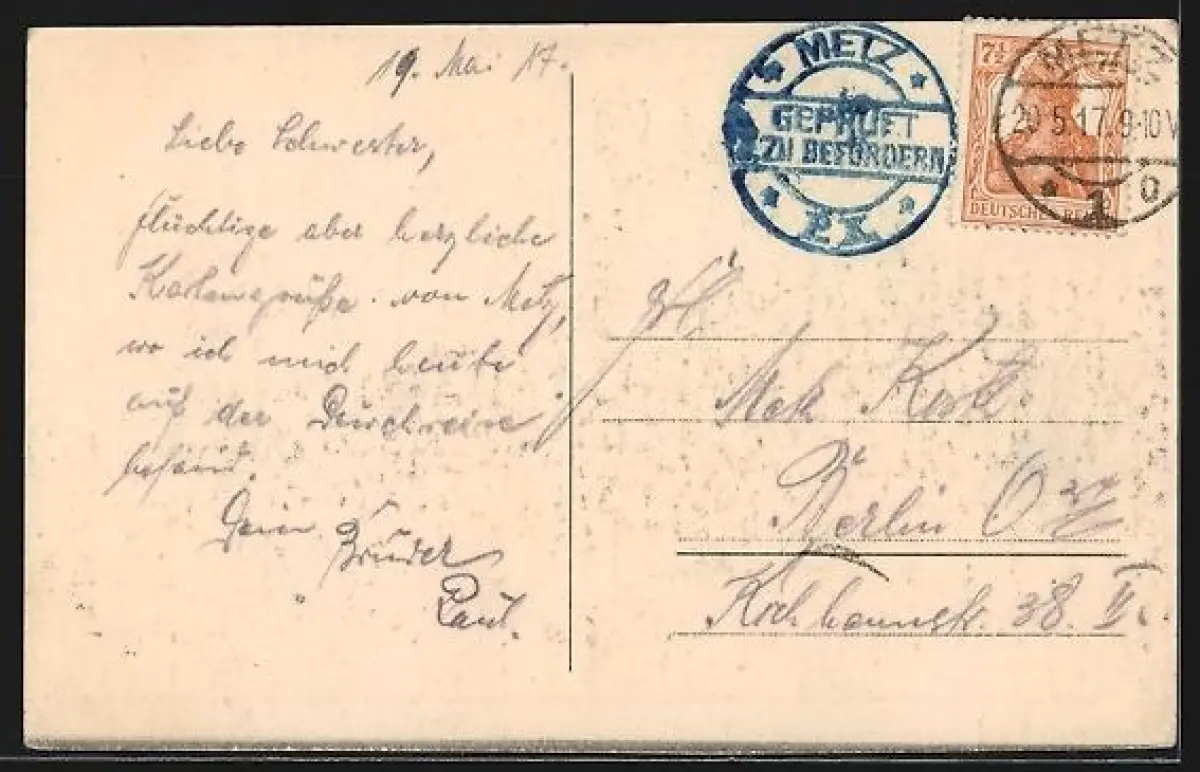 19. Mai 17.
Liebe Schwester,
flüchtige aber herzliche
Kartengrüße von Metz,
wo ich mich heute
auf der Durchreise
befand.
Dein Bruder
Paul.
METZ
GEPRÜFT
ZU BEFÖRDERN
P.K.
7½ 7½
DEUTSCHES REICH
METZ
20.5.17.9-10V
* 1 o
Frl.
Berlin O
Kochhannstr. 38. II.